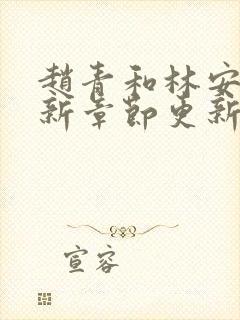 趙青和林安
新章節更新
宣容